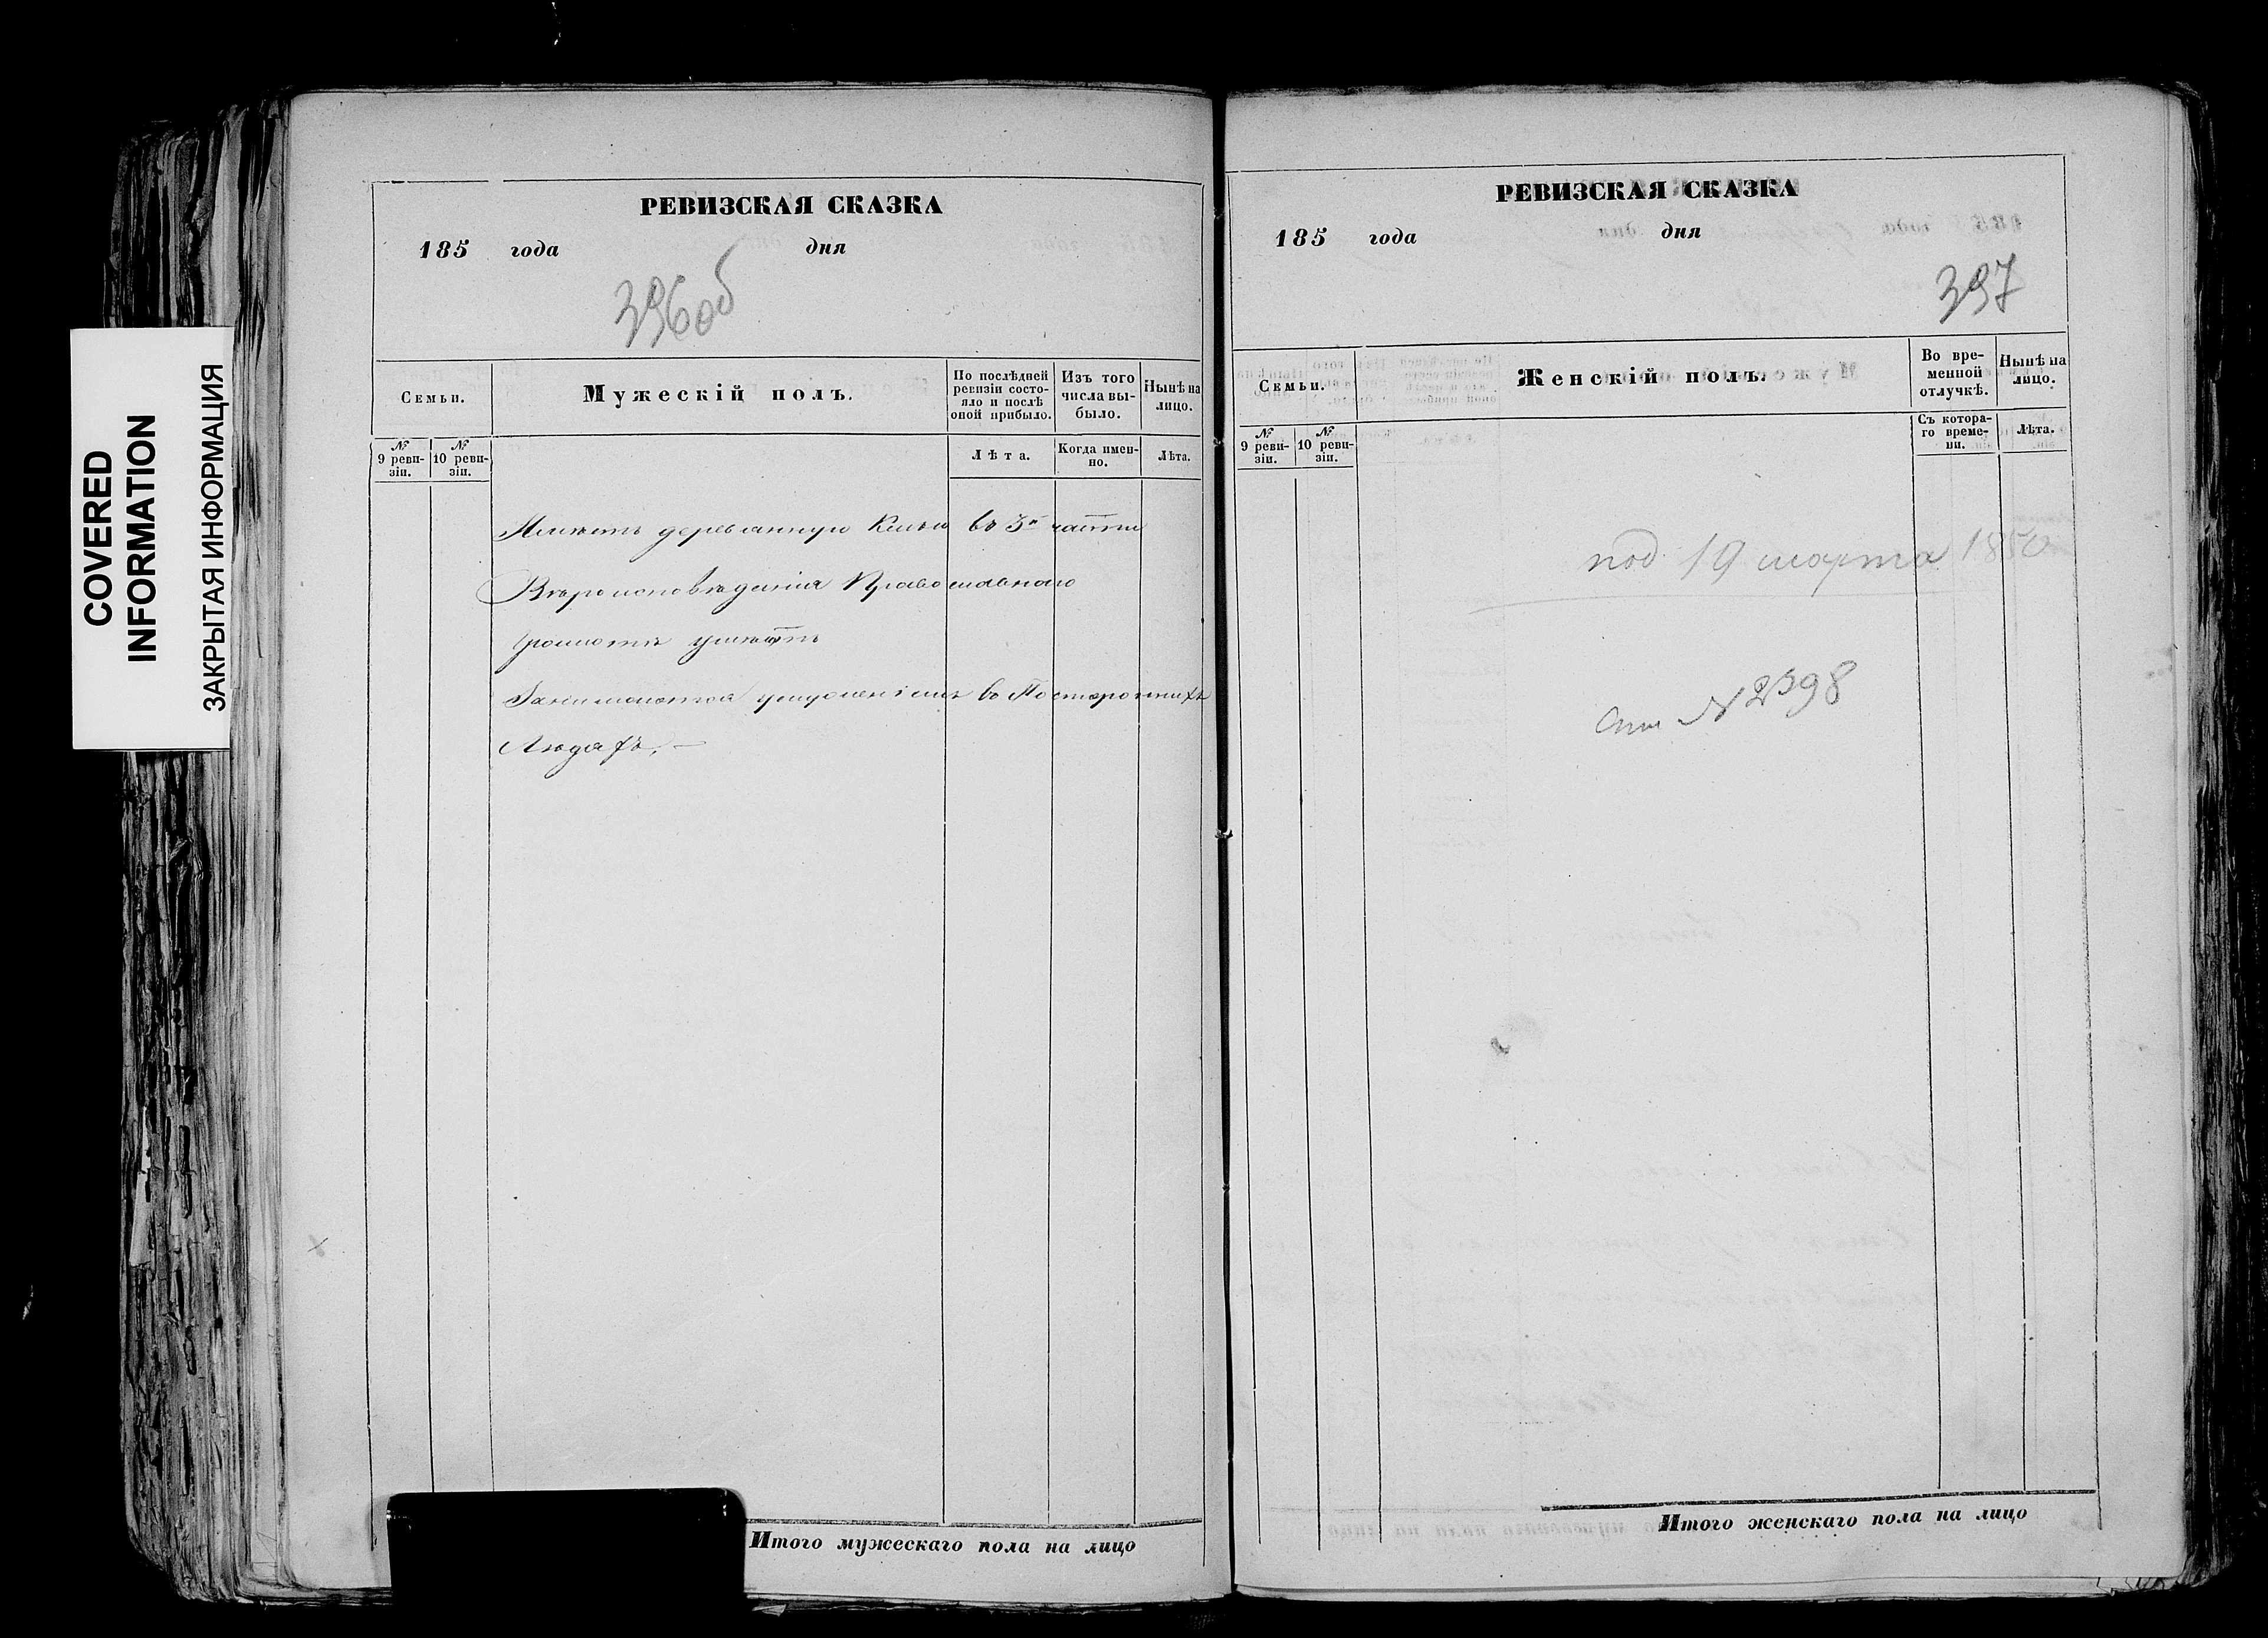 COVERED
INFORMATION
ЗАКРЫТАЯ ИНФОРМАЦИЯ
РЕВИЗСКАЯ СКАЗКА
185 года дня
396об
Семьи.
Мужескій полъ.
По послѣдней ревизіи состояло и послѣ оной прибыло.
Изъ того числа выбыло.
Нынѣ на лицо.
№ 9 ревизіи.
№ 10 ревизіи.
Лѣта.
Когда именно.
Лѣта.
Имѣетъ деревянную Келью въ 3й части
Вѣроисповѣданія Православнаго
Грамотѣ умѣетъ
Занимается въ Постороннихъ
Людяхъ. —
Итого мужескаго пола на лицо
РЕВИЗСКАЯ СКАЗКА
185 года дня
397
Семьи.
Женскій полъ.
Во временной отлучкѣ.
Нынѣ на лицо.
№ 9 ревизіи.
№ 10 ревизіи.
Съ котораго времени.
Лѣта.
под 19 марта 1850
№ 2398
Итого женскаго пола на лицо